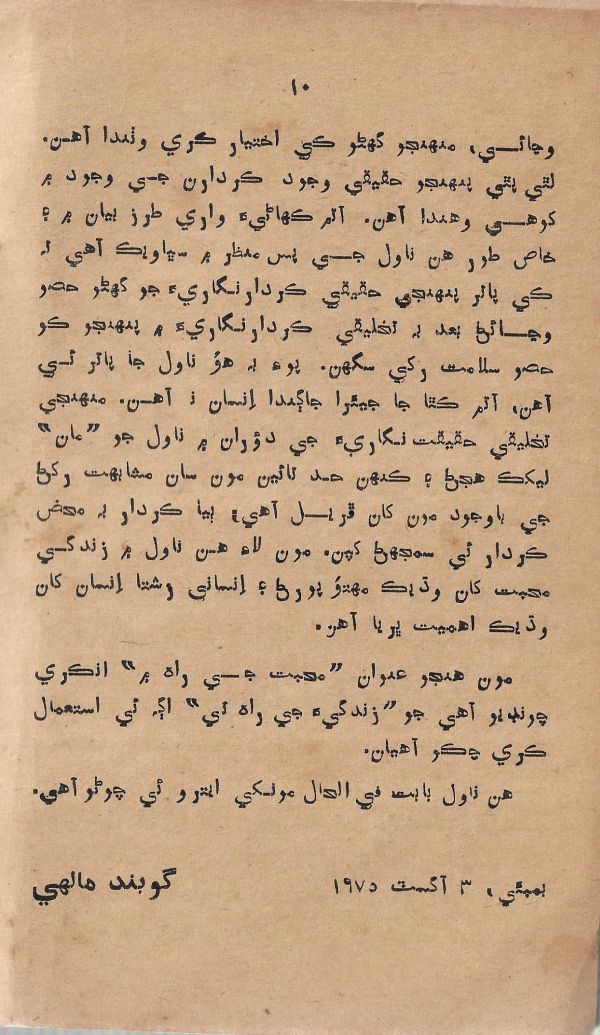 ١٠
وڃائـي، منهنجو گهڻو ڪي اختيار ڪري وٺندا آهـن.
لٿي پٿي پنهنجو حقيقي وجود ڪردارن جـي وجود ۾
کوهـي وهندا آهن. آتم ڪهاڻيءَ واري طرز بيان ۾ ۽
خاص طور هن ناول جـي پس منظر ۾ سڀاويڪ آهي تہ
ڪي پاتر پنهنجي حقيقي ڪردارنگاريءَ جو گهڻو حصو
وڃـائڻ بعد بہ تخليقي ڪردارنگاريءَ ۾ پنهنجو ڪو
حصو سلامت رکي سگهن. پوءِ بہ هوُ ناول جا پاتر ئـي
آهن، آتم ڪٿا جا جيئرا جاڳندا اِنسان نہ آهـن. منهنجي
تخليقي حقيقت نگاريءَ جي دؤران ۾ ناول جو ”مان“
ليکڪ هجڻ ۽ ڪنهن حـد تائين مون سان مشابهت رکڻ
جي باوجود مون کان ڦريـل آهي؛ ٻيا ڪردار بہ محض
ڪردار ئي سمجهڻ کپن. مون لاءِ هـن ناول ۾ زندگـي
محبت کان وڌيڪ مهتوُ پورڻ ۽ اِنساني رشتا اِنسان کان
وڌيڪ اهميت ڀريا آهن.
مون هنجو عنوان ”محبت جـي راه ۾“ انڪري
چونڊيو آهي جو ”زندگيءَ جي راه تي“ اڳہ ئي استعمال
ڪري چڪو آهيان.
هن ناول بابت في الحال مونکي ايترو ئي چوڻو آهي.
بمبئي، ٣ آگسٽ ١٩٧٥ گوبند مالهي